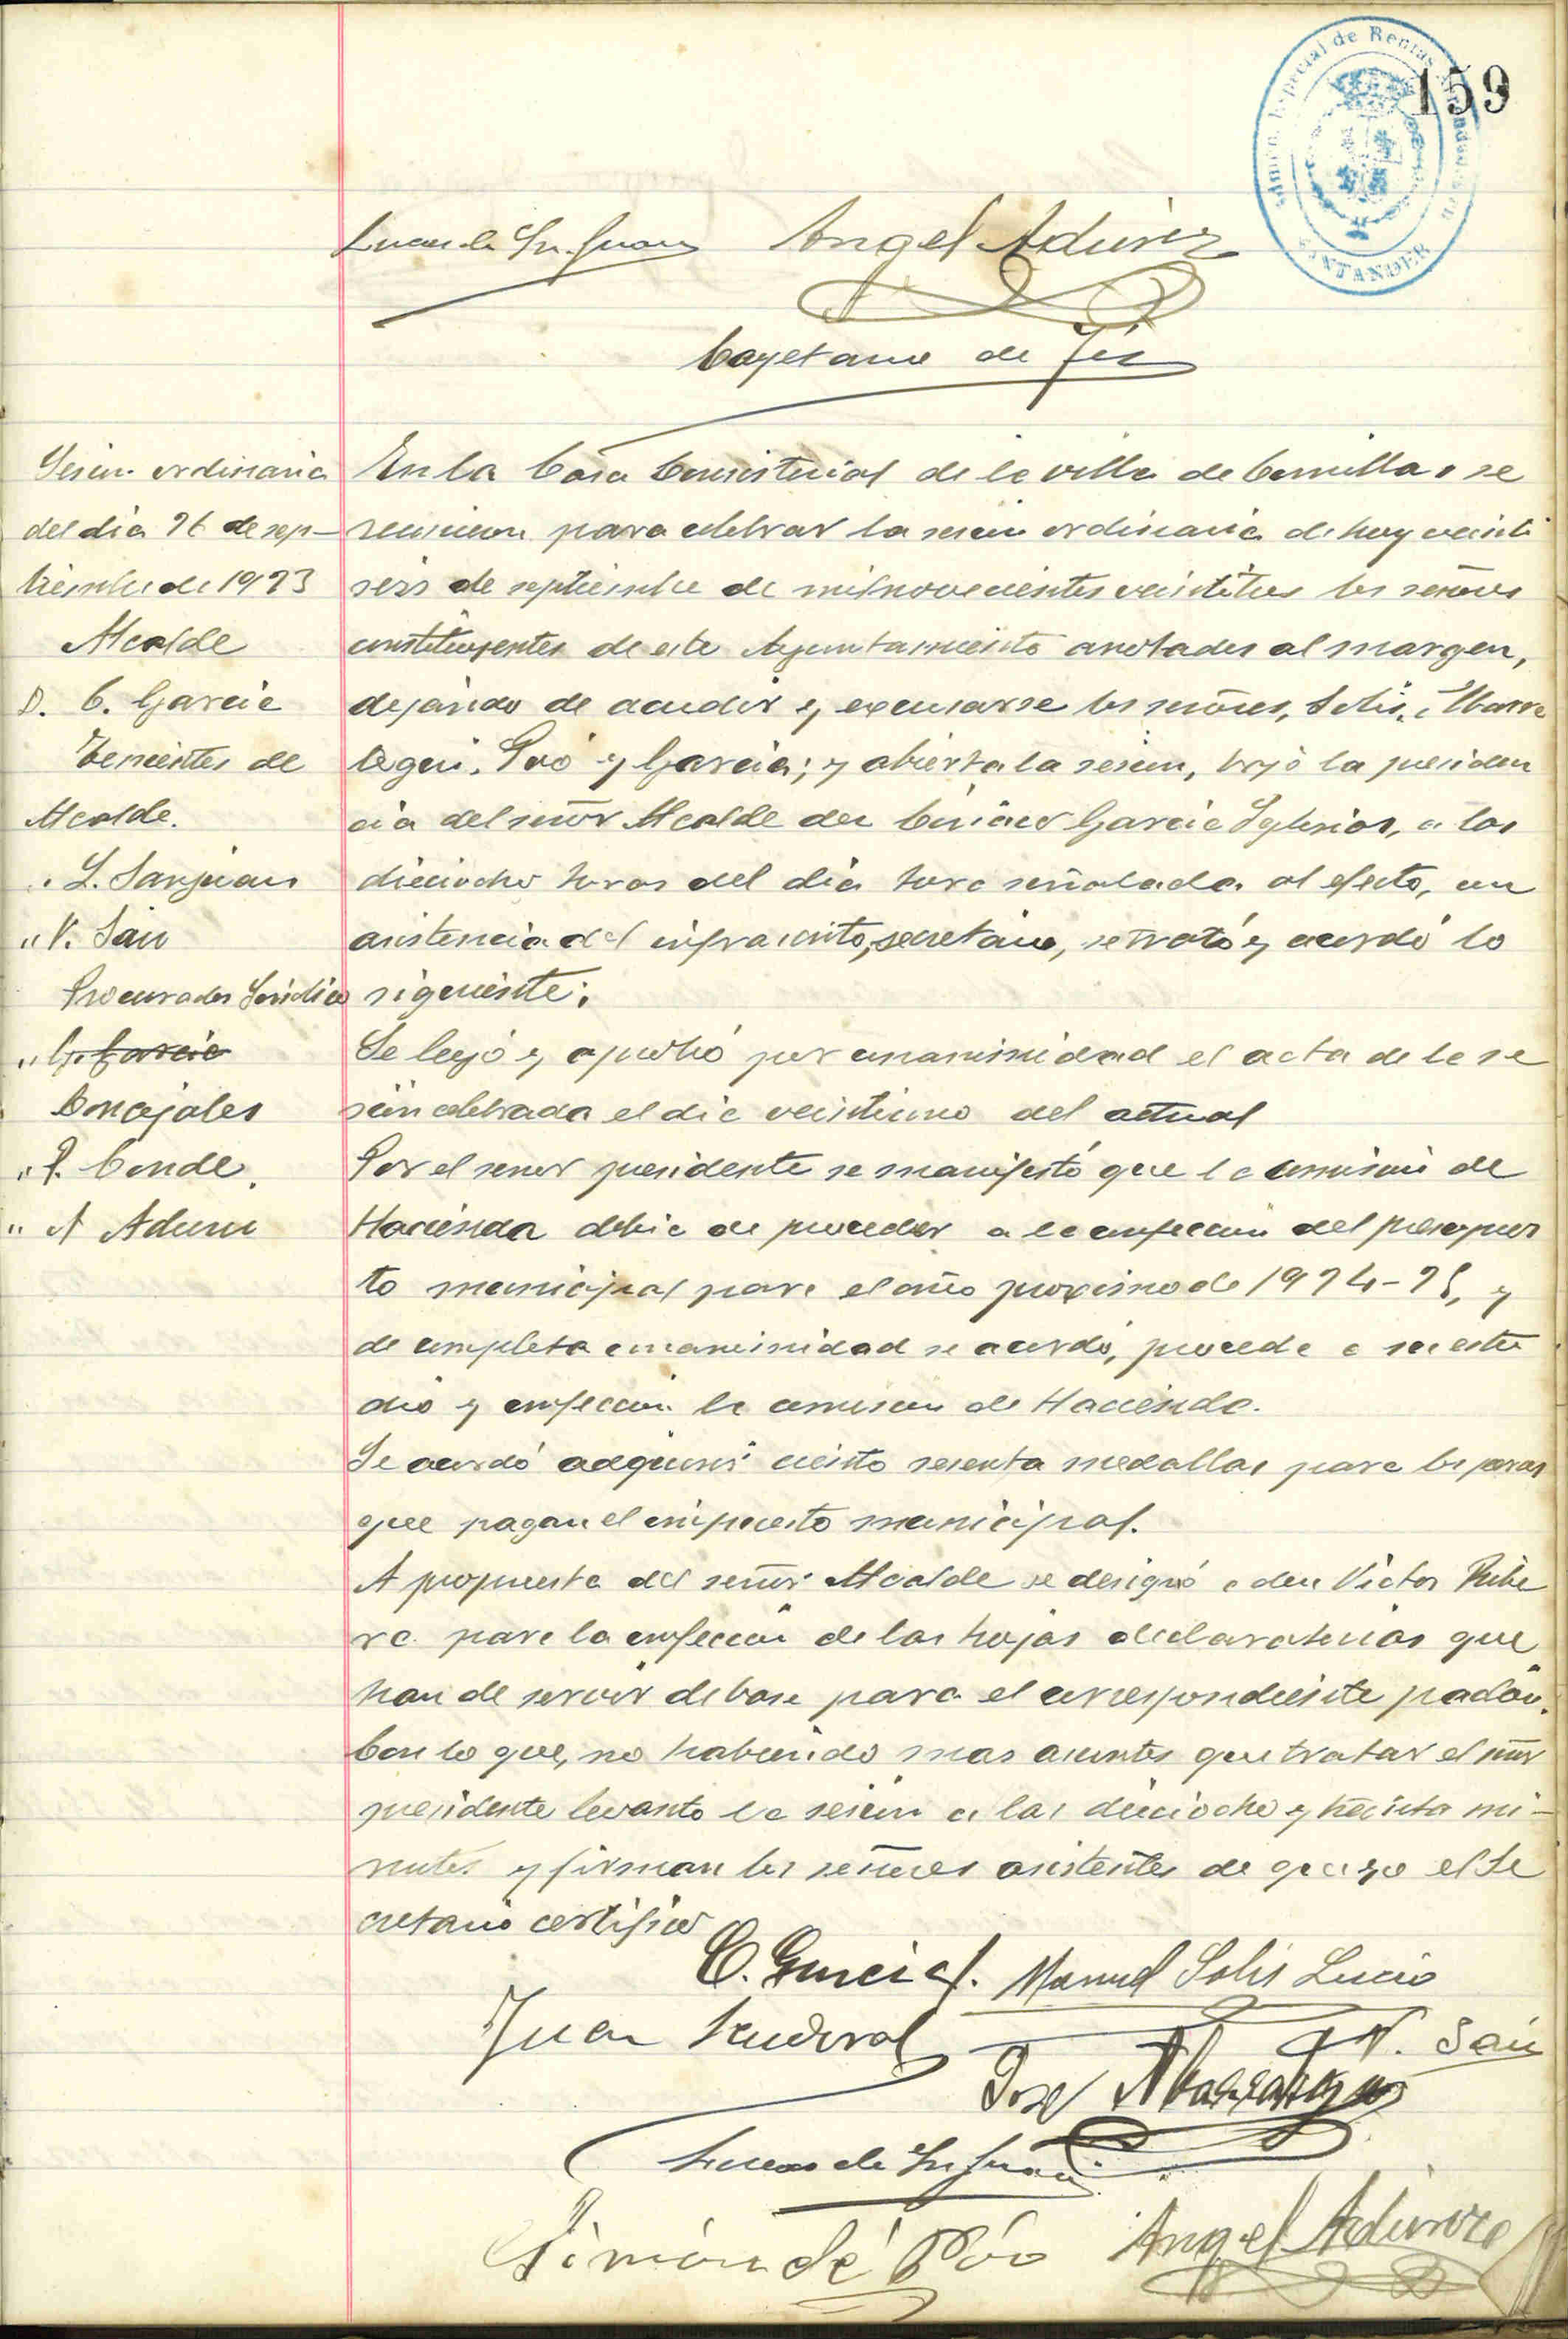 159
Admón. Especial de Rentas Arrendadas en
SANTANDER
Lucas de Sn. Juan Angel Aduriz
Cayetano de
Sesion ordinaria
del dia 26 de sep-
tiembre de 1923
Alcalde
D. C. Garcia
Tenientes de
Alcalde.
" L. Sanjuan
" V. Sain
Procurador Sindico
" G. Garcia
Concejales
" P. Conde.
" A Aduriz
En la Casa Consistorial de la villa de Comillas se
reunieron para celebrar la sesion ordinaria de hoy veinti
seis de septiembre de mil novecientos veintitres los señores
constituyentes de este Ayuntamiento anotados al margen,
dejando de acudir y excusarse los señores, Solis, Abarra
tegui, Póo y Garcia; y abierta la sesion, bajo la presiden
cia del señor Alcalde don Ciriaco Garcia Iglesias, a las
dieciocho horas del dia hora señalada al efecto, con
asistencia del infrascrito, secretario, se trató y acordó lo
siguiente:
Se leyó y aprobó por unanimidad el acta de la se
sion celebrada el dia veintiuno del actual
Por el señor presidente se manifestó que la comision de
Hacienda debia de proceder a la confeccion del presupues
to municipal para el año proximo de 1924-25, y
de completa unanimidad se acordó, proceda a su estu
dio y confeccion la comision de Hacienda.
Se acordó adquirir ciento sesenta medallas para los perros
que pagan el impuesto municipal.
A propuesta del señor Alcalde se designó a don Victor Ribe
ra para la confeccion de las hojas declaratorias que
han de servir de base para el correspondiente padón.
Con lo que, no habiendo mas asuntos que tratar el señor
presidente levanto la sesion a las dieciocho y treinta mi-
nutos y firman los señores asistentes de que yo el Se
cretario certifico
C. Garcia I. Manuel Solis Lucio
Juan Sandoval V. Sain
Jose Abarrategui
Lucas de Sn Juan
Simón de Póo Angel Aduriz